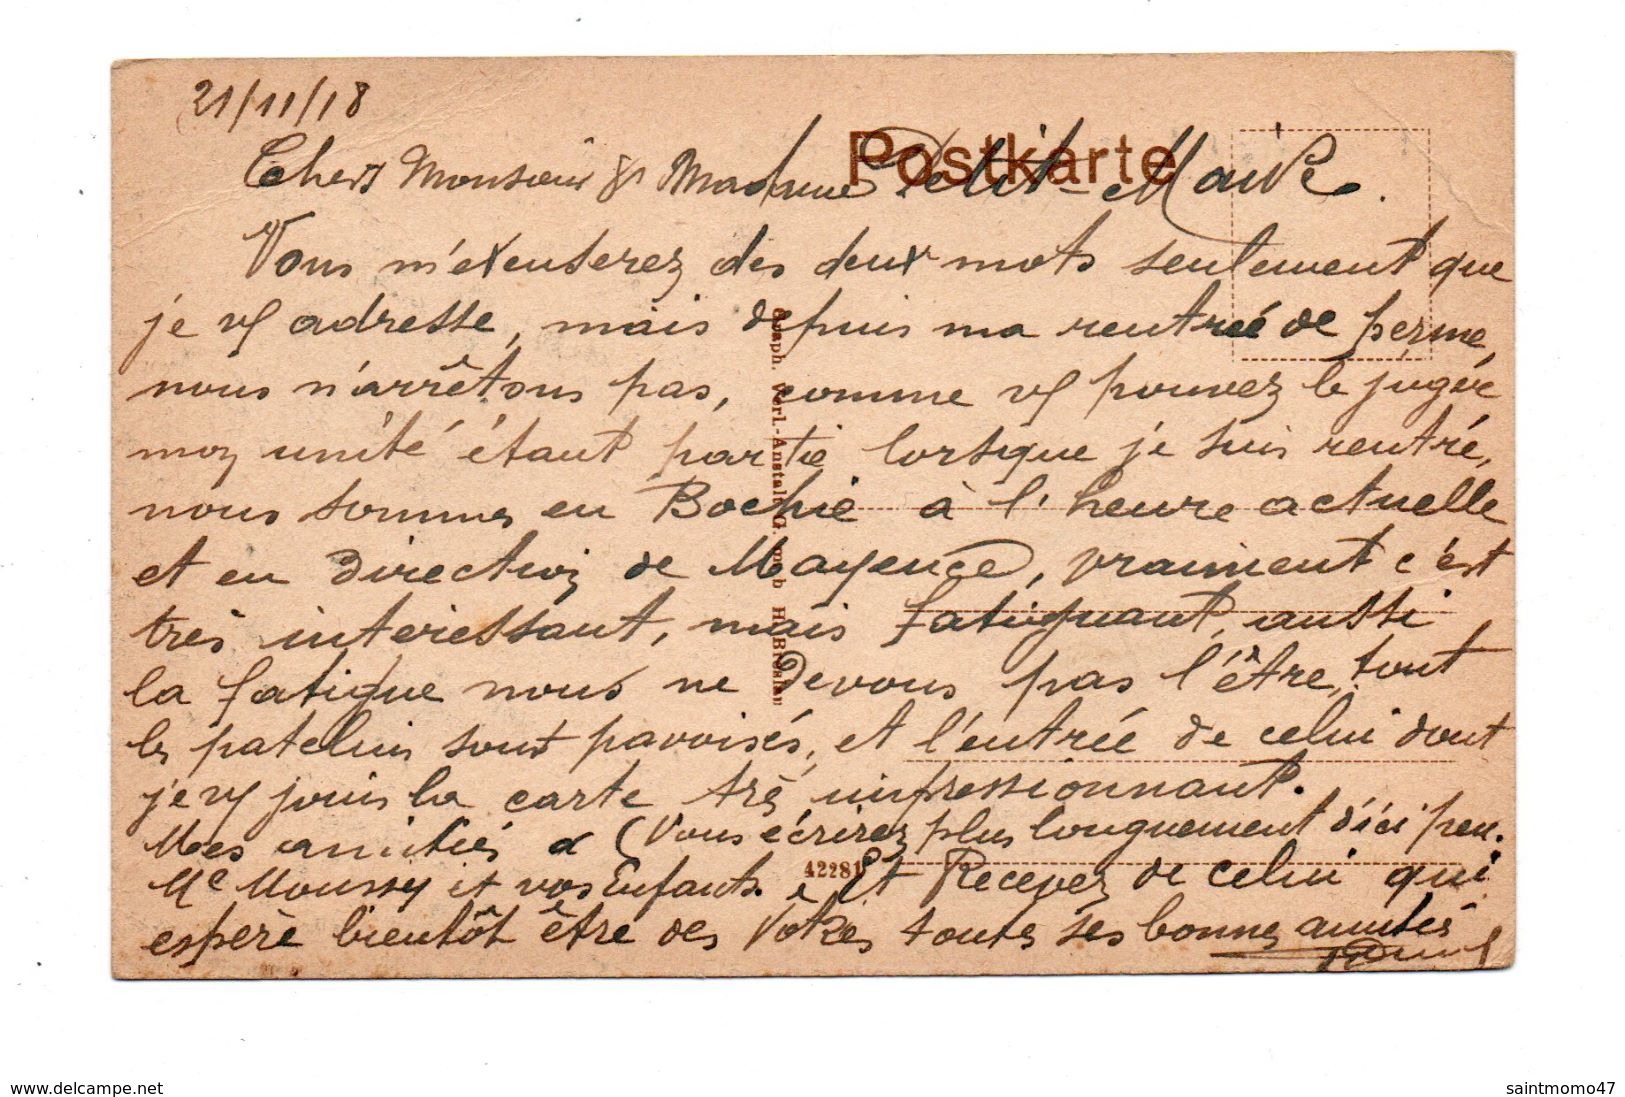 21/11/18
Postkarte
Chers Monsieur & Madame Petit-Maire.
Vous m'excuserez des deux mots seulement que
je vs adresse, mais depuis ma rentrée de perme,
nous n'arrêtons pas, comme vs pouvez le juger
mon unité étant partie lorsque je suis rentré,
nous sommes en Bochie à l'heure actuelle
et en direction de Mayence, vraiment c'est
très interessant, mais fatiguant, aussi
la fatigue nous ne devons pas l'être, tout
les patelins sont pavoisés, et l'entrée de celui dont
je vs joins la carte très impressionnant.
Mes amitiés à (Vous écrirez plus longuement d'ici peu.
Me Moussy et vos Enfants. Et Recevez de celui qui
espère bientôt être des Votres toutes ses bonnes amitiés
Graph. Verl.-Anstalt G. m. b. H. Breslau
42281
www.delcampe.net
saintmomo47